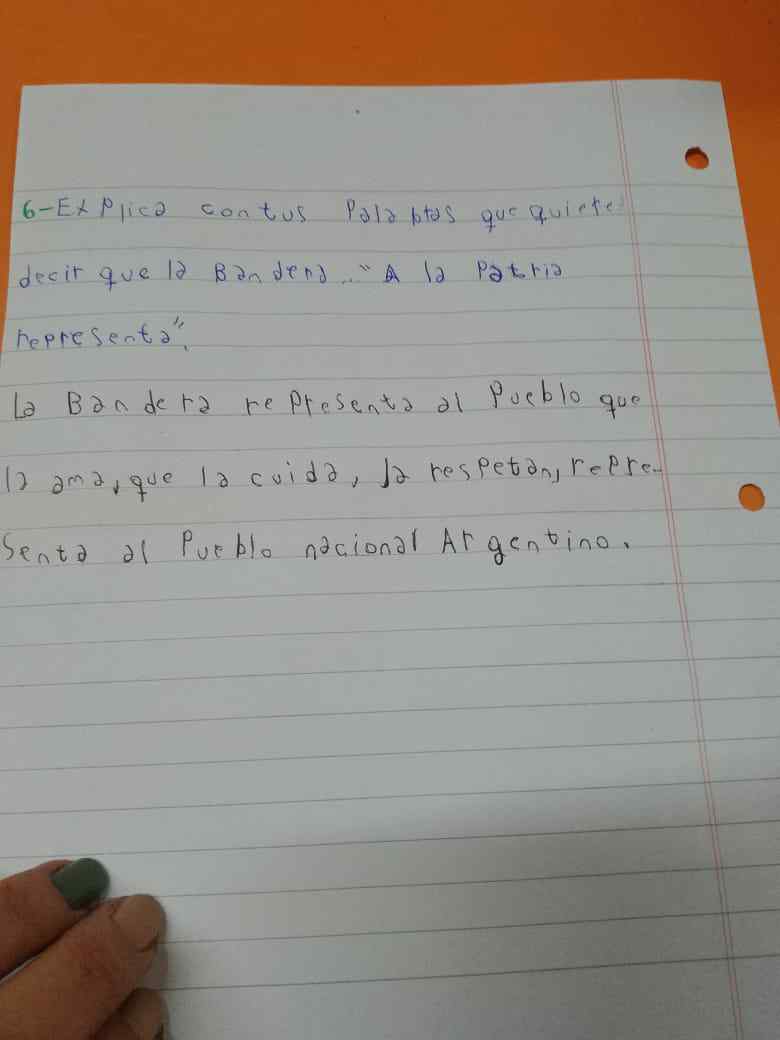 6-Explica con tus Palabras que quiere
decir que la Bandera... "A la Patria
representa".
La Bandera representa al Pueblo que
la ama, que la cuida, la respetan, repre-
senta al Pueblo nacional Argentino.